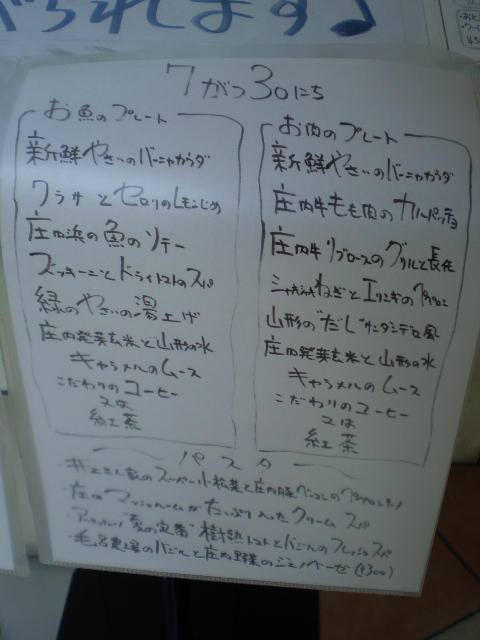 られます♪
7がつ30にち
お魚のプレート
新鮮やさいのバーニャカウダ
クラゲとセロリのLモンじめ
庄内浜の魚のソテー
ズッキーニとドライトマトのスパ
緑のやさいの湯上げ
庄内発芽玄米と山形の水
キャラメルのムース
こだわりのコーヒー
又は
紅茶
お肉のプレート
新鮮やさいのバーニャカウダ
庄内牛もも肉のカルパッチョ
庄内牛リブロースのグリルと長芋
ねぎとエリンギの
山形の"だし"サンダニエレ風
庄内発芽玄米と山形の水
キャラメルのムース
こだわりのコーヒー
又は
紅茶
パスタ
井上さん家のスーパー小松菜と庄内豚ベーコンのペペロンチーノ
・庄内マッシュルームがたっぷり入ったクリームスパ
"夏の定番"樹熟トマトとバジルのフレッシュスパ
・農場のバジルと庄内野菜のジェノベーゼ(+300)